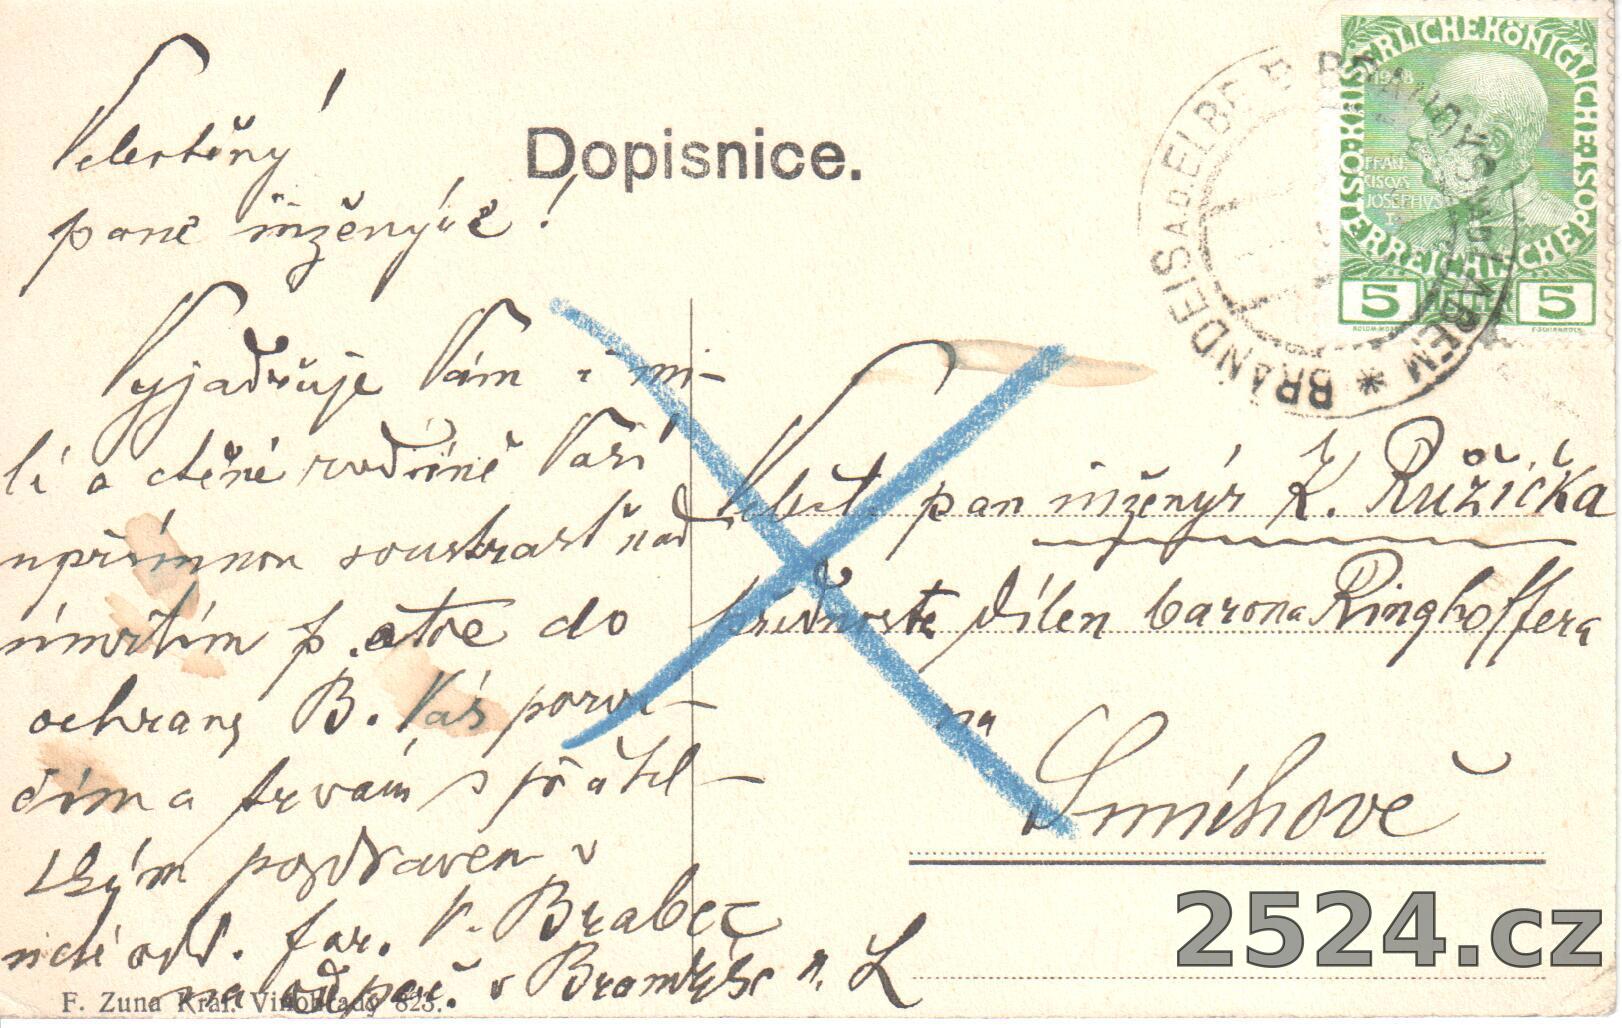 Velectěný
pane inženýre!
Dopisnice.
Vyjadřuje Vám i mi-
lé a ctěné rodině Vaší
upřímnou soustrast nad
úmrtím p. otce do
ochrany B. Vás porou-
čím a trvám s přátel-
ským pozdravem v
úctě odd. far. V. Brabec
na odpoč. v Brandýse n. L
Velect. pan inženýr K. Růžička
přednosta dílen barona Ringhoffera
na
Smíchově
KAISERLICHE KÖNIGLICHE ÖSTERREICHISCHE POST
1908
FRAN
CISCVS
JOSEPHVS
I
5 HELLER 5
BRANDEIS A.D. ELBE BRANDÝS NAD LABEM
F. Zuna Král. Vinohrady 823.
2524.cz